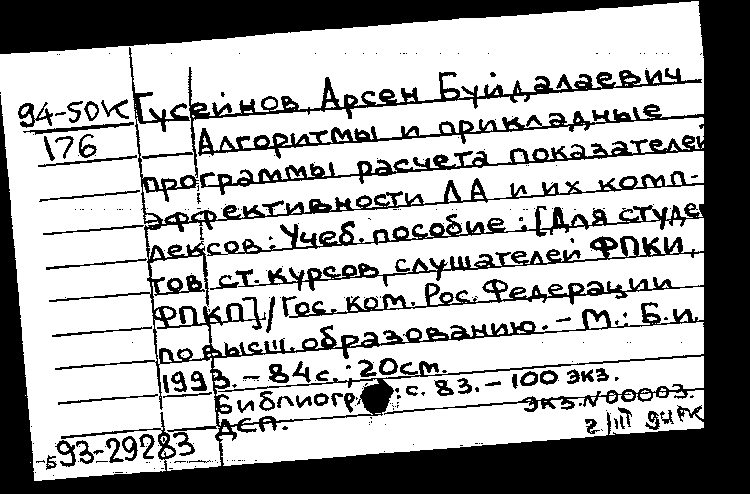 94-50К Гусейнов, Арсен Буйдалаевич
176 Алгоритмы и прикладные
программы расчета показателей
эффективности ЛА и их комп-
лексов: Учеб. пособие : [Для студе
тов ст. курсов, слушателей ФПКИ,
ФПКП] / Гос. ком. Рос. Федерации
по высш. образованию. - М.: Б.и.
1993. - 84 с.; 20 см.
Библиогр.: с. 83. - 100 экз.
ДСП. экз. N 00003.
93-29283